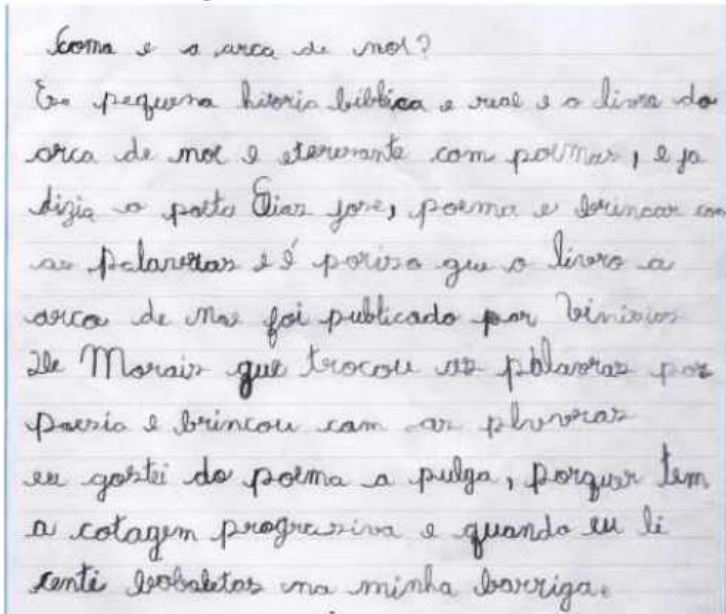 Como e a arca de noe?
Era pequena hitoria biblica e real e o livro da
arca de noe e eteresante com poemas, e ja
dizia o poeta Elias jose, poema e brincar com
as palavras e é poriso que o livro a
arca de noe foi publicado por Vinisios
De Morais que trocou as palavras por
poesia e brincou com as plavras
eu gostei do poema a pulga, porque tem
a cotagem progresiva e quando eu li
senti bobaletas na minha barriga.